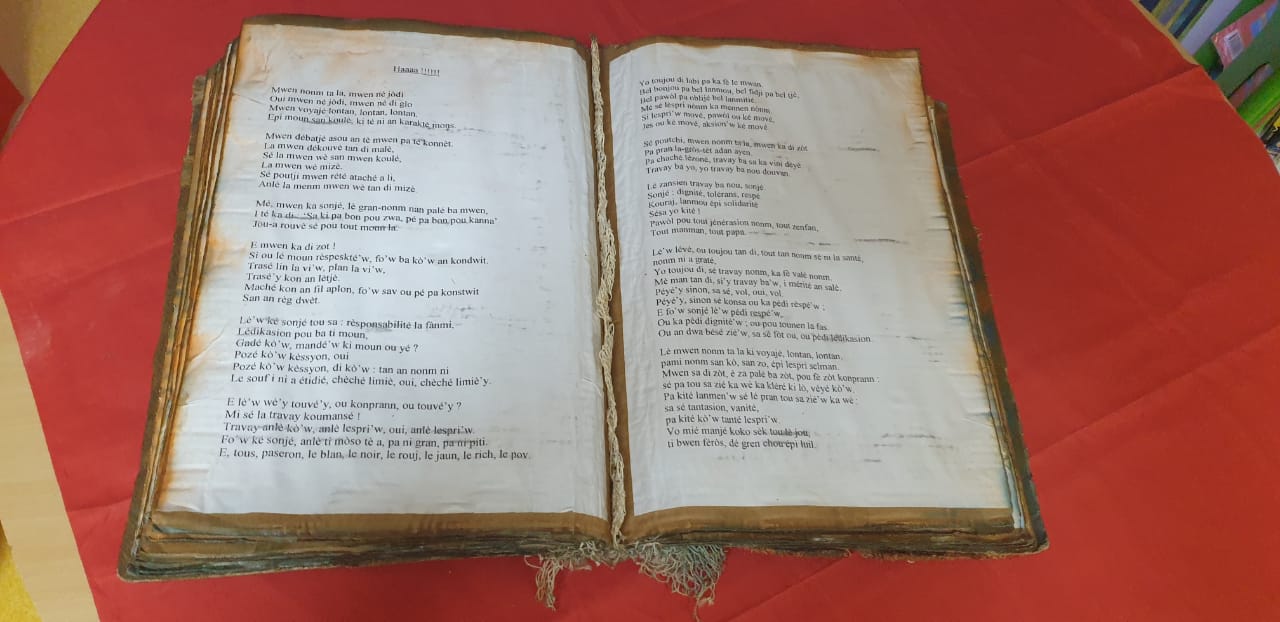 Haaaa !!!!!!
Mwen nonm ta la, mwen né jòdi
Oui mwen né jòdi, mwen né di glo
Mwen voyajé lontan, lontan, lontan.
Epi moun san koulè, ki té ni an karaktè mons.
Mwen débatjé asou an tè mwen pa té konnèt.
La mwen dékouvè tan di malè,
Sé la mwen wè san mwen koulé,
La mwen wè mizè.
Sé poutji mwen rété ataché a li,
Anlè la menm mwen wè tan di mizè.
Mé, mwen ka sonjé, lè gran-nonm nan palé ba mwen,
I té ka di : 'Sa ki pa bon pou zwa, pé pa bon pou kanna'
Jou-a rouvè sé pou tout moun la.
E mwen ka di zot !
Si ou lé moun rèspèskté'w, fo'w ba kò'w an kondwit.
Trasé lin la vi'w, plan la vi'w,
Trasé'y kon an lètjè.
Maché kon an fil aplon, fo'w sav ou pé pa konstwit
San an règ dwèt.
Lè'w ké sonjé tou sa : rèsponsabilité la fànmi,
Lédikasion pou ba ti moun,
Gadé kò'w, mandé'w ki moun ou yé ?
Pozé kò'w kèssyon, oui
Pozé kò'w kèssyon, di kò'w : tan an nonm ni
Le souf i ni a étidié, chèché limiè, oui, chèché limiè'y.
E lè'w wè'y touvé'y, ou konprann, ou touvé'y ?
Mi sé la travay koumansé !
Travay anlè kò'w, anlè lespri'w, oui, anlè lespri'w.
Fo'w ké sonjé, anlè ti mòso tè a, pa ni gran, pa ni piti.
E, tous, paseron, le blan, le noir, le rouj, le jaun, le rich, le pov.
Yo toujou di labi pa ka fè le mwan.
Bel bonjou pa bel lanmou, bel fidji pa bel tjè,
Bel pawòl pa oblijé bel lanmitié.
Mé sé lespri nonm ka mennen nonm,
Si lespri'w mové, pawòl ou ké mové,
Jes ou ké mové, aksion'w ké mové.
Sé poutchi, mwen nonm ta la, mwen ka di zòt
Pa pran la-gròs-tèt adan ayen.
Pa chaché lézonè, travay ba sa ka vini dèyè
Travay ba yo, yo travay ba nou douvan.
Lé zansien travay ba nou, sonjé
Sonjé : dignité, tolérans, respé
Kouraj, lanmou épi solidarité
Sésa yo kité !
Pawòl pou tout jénérasion nonm, tout zenfan,
Tout manman, tout papa.
Lè'w lévé, ou toujou tan di, tout tan nonm sé ni la santé,
nonm ni a graté.
Yo toujou di, sé travay nonm, ka fè valè nonm.
Mé man tan di, si'y travay ba'w, i mérité an salè.
Péyé'y sinon, sa sé, vol, oui, vol.
Péyé'y, sinon sé konsa ou ka pèdi rèspé'w ;
E fo'w sonjé lè'w pèdi respé'w,
Ou ka pèdi dignité'w ; ou pou tounen la fas.
Ou an dwa bésé zié'w, sa sé fòt ou, ou pèdi lédikasion.
Lè mwen nonm ta la ki voyajé, lontan, lontan,
pami nonm san kò, san zo, épi lespri selman.
Mwen sa di zòt, é za palé ba zòt, pou fè zòt konprann :
sé pa tou sa zié ka wè ka kléré ki lò, véyé kò'w.
Pa kité lanmen'w sé lé pran tou sa zié'w ka wè :
sa sé tantasion, vanité,
pa kité kò'w tanté lespri'w.
Vo mié manjé koko sèk tou lé jou,
ti bwen féròs, dé gren chou épi luil.